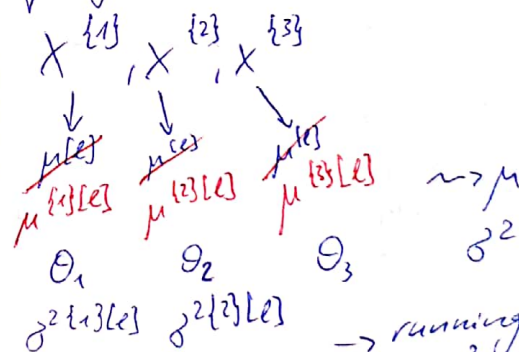 X^{1}, X^{2}, X^{3}
↓ ↓ ↘
μ^[l] μ^[l] μ^[l]
μ^{1}[l] μ^{2}[l] μ^{3}[l] ~> μ
θ₁ θ₂ θ₃ σ²
σ²^{1}[l] σ²^{2}[l]
→ running